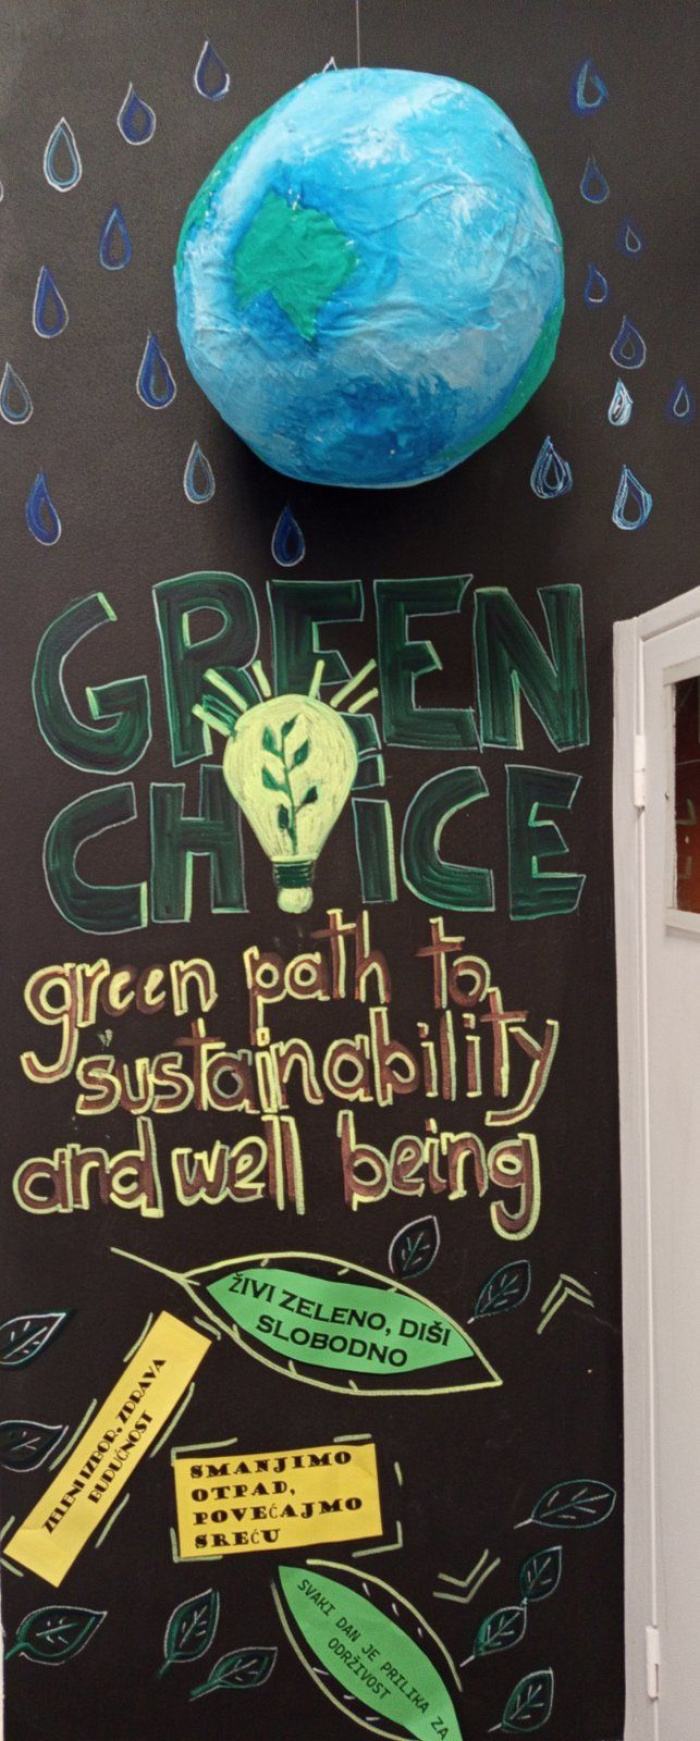 GREEN
CHOICE
green path to
sustainability
and well being
ŽIVI ZELENO, DIŠI
SLOBODNO
ZELENI IZBOR, ZDRAVA
BUDUĆNOST
SMANJIMO
OTPAD,
POVEĆAJMO
SREĆU
SVAKI DAN JE PRILIKA ZA
ODRŽIVOST